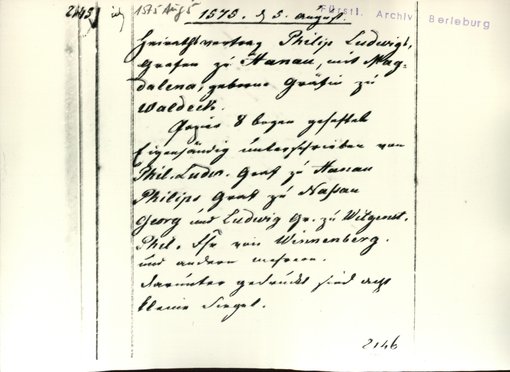 2145
1575 Aug 5
1575. d 5. August.
Fürstl. Archiv Berleburg
Heirathsvertrag Philip Ludwigs,
Grafen zu Hanau, mit Mag-
dalena, geborne Gräfin zu
Waldeck.
Papier 8 bogen geheftet
Eigenhändig unterschrieben von
Phil. Ludw. Graf zu Hanau
Philips Graf zu Naßau
Georg und Ludwig Gr. zu Witgenst.
Phil. Fhr von Winnenberg.
und andern mehrern.
darunter gedruckt sind acht
kleine Siegel.
2146